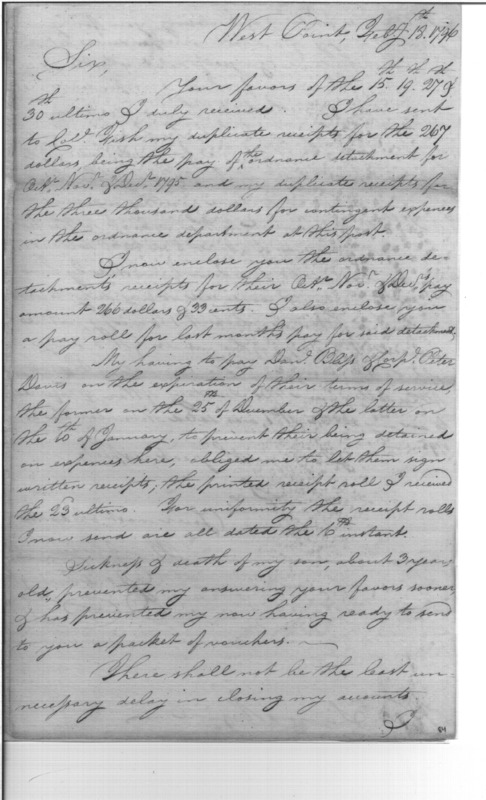 West Point, Feby 13th. 1796
Sir,
Your favors of the 15th. 19th. 27th &
30th ultimo I duly received. I have sent
to Colo. Fish my duplicate receipts for the 267
dollars being the pay of the ordnance detachment for
Octr. Novr. & Decr. 1795 and my duplicate receipts for
the three thousand dollars for contingent expences
in the ordnance department at this post.
I now enclose you the ordnance de-
tachments receipts for their Octr. Novr. & Decr. pay
amount 266 dollars & 33 cents. I also enclose you
a pay roll for last month's pay for said detachment,
My having to pay Danl. Bliss & Corpl. Peter
Davis on the expiration of their terms of service,
the former on the 25th of December & the latter on
the 6th of January, to prevent their being detained
on expences here, obliged me to let them sign
written receipts; the printed receipt roll I received
the 23 ultimo. For uniformity the receipt rolls
I now send are all dated the 6th instant.
Sickness & death of my son, about 3 years
old, prevented my answering your favors sooner,
& has prevented my now having ready to send
to you a packet of vouchers.
There shall not be the least un-
necessary delay in closing my accounts
I
84